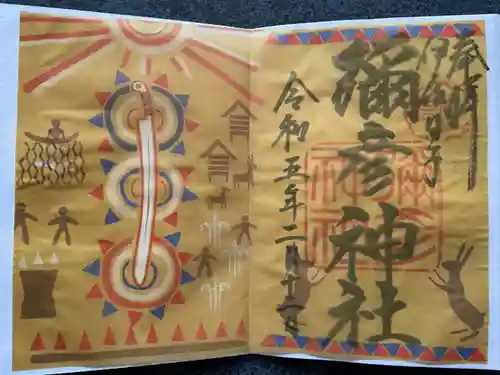 奉拝
伊夜日子
彌彦神社
令和五年二月十二日